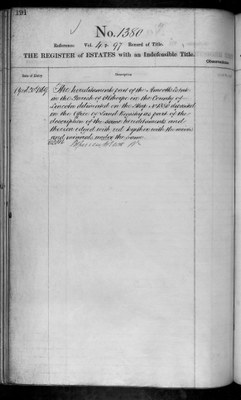 191
No. 1380
Reference Vol. 4 & 97 Record of Title.
THE REGISTER of ESTATES with an Indefeasible Title.
Date of Entry
Description
Observations
The hereditaments part of the Estate
in the Parish of in the County of
Lincoln delineated on the Map N deposited
in the Office of Land Registry as part of the
description of the same hereditaments and
therein edged with red together with the mines
and minerals under the same